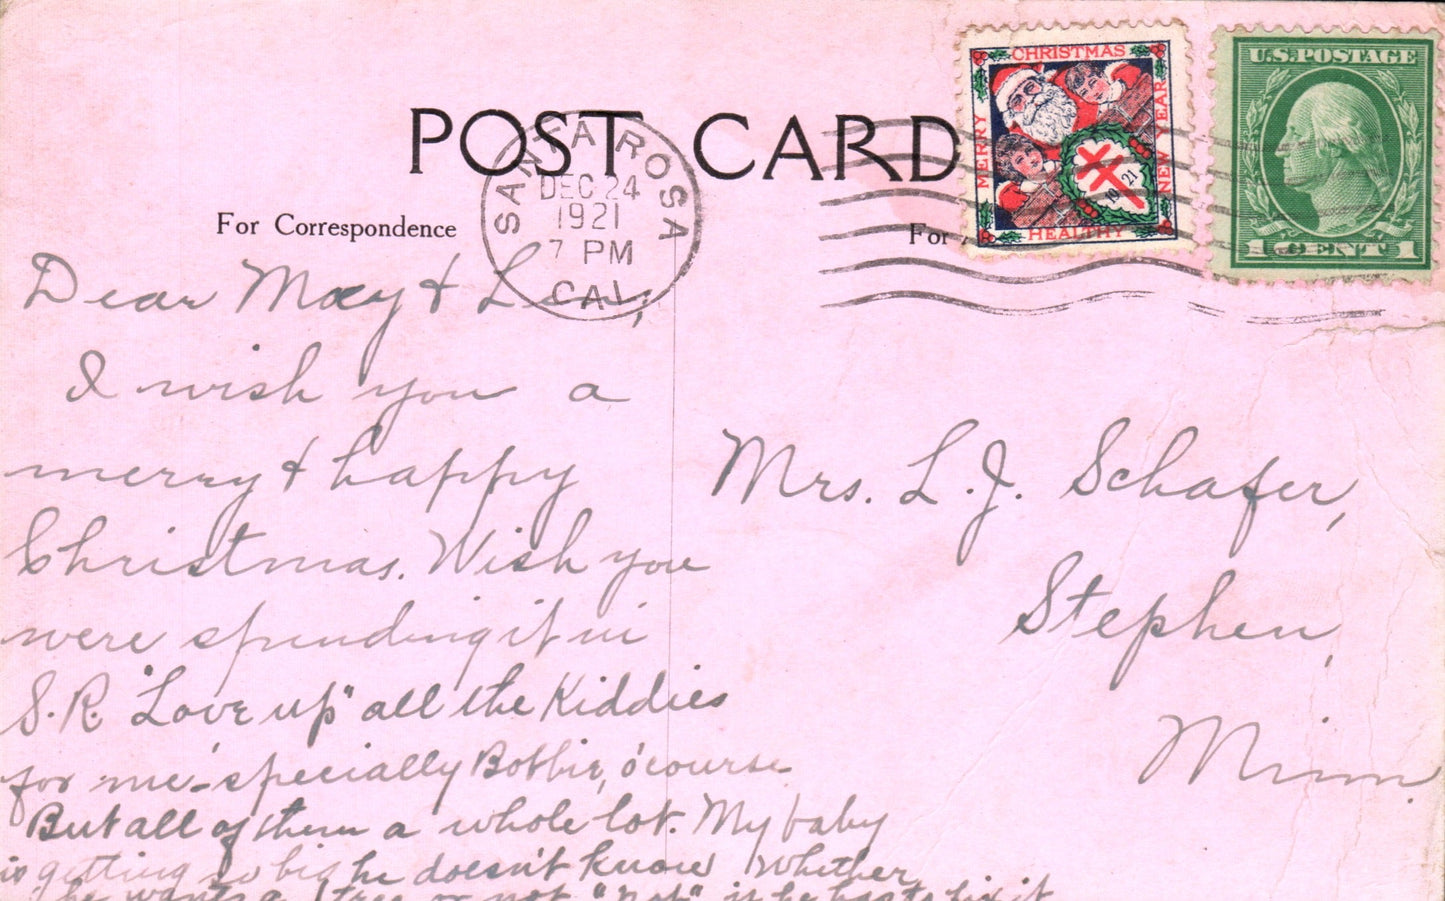 POST CARD
CHRISTMAS
MERRY
NEW YEAR
HEALTHY
1921
U.S. POSTAGE
1 CENT 1
SANTA ROSA
DEC 24
1921
7 PM
CAL.
For Correspondence
For
Dear May & Len,
I wish you a
merry & happy
Christmas. Wish you
were spending it in
S.R. "Love up" all the Kiddies
for me - 'specially Bobbie, o'course
But all of them a whole lot. My baby
is getting so big he doesn't know whether
he wants a tree or not "not" if he has to fix it
Mrs. L. J. Schafer,
Stephen,
Minn.